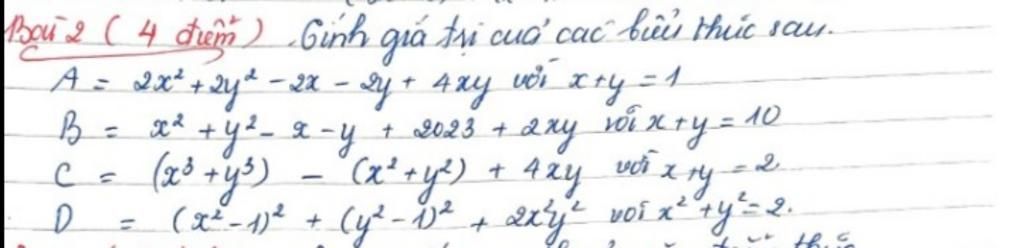 Bài 2 ( 4 điểm ) . Tính giá trị của các biểu thức sau.
A = 2x² + 2y² - 2x - 2y + 4xy với x+y = 1
B = x² + y² - x - y + 2023 + 2xy với x+y = 10
C = (x³ + y³) - (x² + y²) + 4xy với x+y = 2
D = (x² - 1)² + (y² - 1)² + 2x²y² với x² + y² = 2.